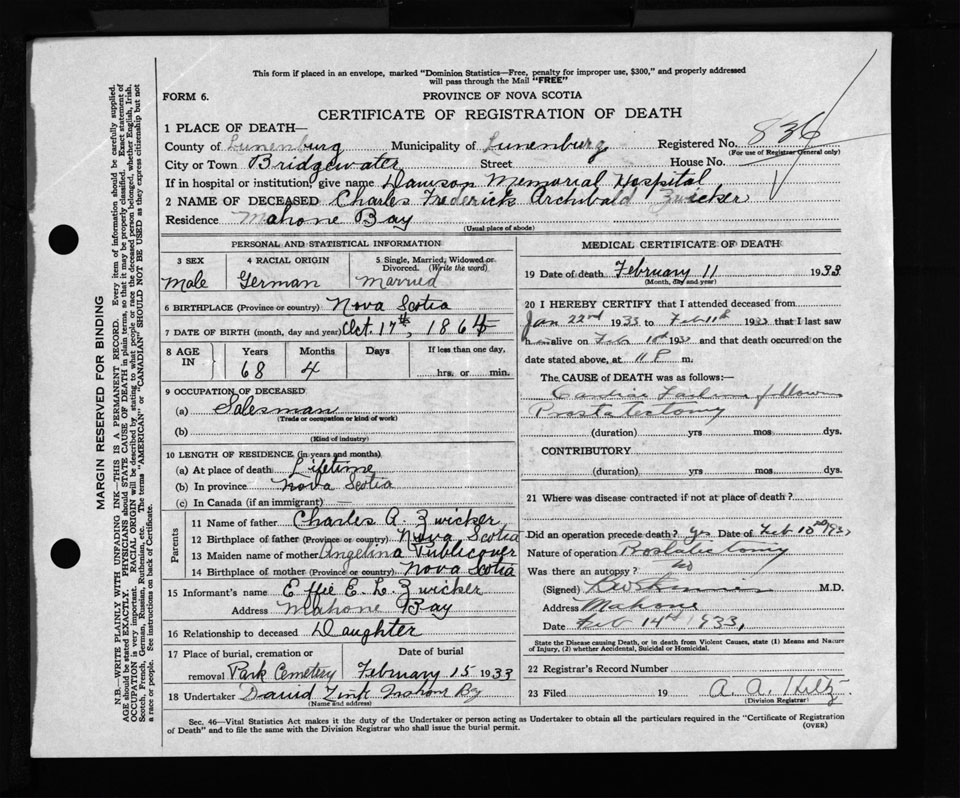 This form if placed in an envelope, marked "Dominion Statistics—Free, penalty for improper use, $300," and properly addressed
will pass through the Mail "FREE"
FORM 6.
PROVINCE OF NOVA SCOTIA
CERTIFICATE OF REGISTRATION OF DEATH
1 PLACE OF DEATH—
Registered No. 836
(For use of Registrar General only)
County of Lunenburg Municipality of Lunenburg
City or Town Bridgewater Street House No.
If in hospital or institution, give name Dawson Memorial Hospital
2 NAME OF DECEASED Charles Frederick Archibald Zwicker
Residence Mahone Bay
(Usual place of abode)
PERSONAL AND STATISTICAL INFORMATION
3 SEX
Male
4 RACIAL ORIGIN
German
5 Single, Married, Widowed or
Divorced. (Write the word)
Married
6 BIRTHPLACE (Province or country) Nova Scotia
7 DATE OF BIRTH (month, day and year) Oct. 17th, 1864
8 AGE IN
Years
68
Months
4
Days
If less than one day,
hrs. or min.
9 OCCUPATION OF DECEASED
(a) Salesman
(Trade or occupation or kind of work)
(b)
(Kind of industry)
10 LENGTH OF RESIDENCE (in years and months)
(a) At place of death Lifetime
(b) In province Nova Scotia
(c) In Canada (if an immigrant) —
Parents
11 Name of father Charles A. Zwicker
12 Birthplace of father (Province or country) Nova Scotia
13 Maiden name of mother Angelina Publicover
14 Birthplace of mother (Province or country) Nova Scotia
15 Informant's name Effie E. L. Zwicker
Address Mahone Bay
16 Relationship to deceased Daughter
17 Place of burial, cremation or
removal Park Cemetery
Date of burial
February 15 1933
18 Undertaker David Zink Mahone Bay
(Name and address)
MEDICAL CERTIFICATE OF DEATH
19 Date of death February 11 1933
(Month, day and year)
20 I HEREBY CERTIFY that I attended deceased from
Jan 22nd 1933 to Feb 11th 1933 that I last saw
h alive on Feb 1933 and that death occurred on the
date stated above, at 11 P m.
The CAUSE OF DEATH was as follows:—
Cardiac Failure following
Prostatectomy
(duration) yrs mos dys.
CONTRIBUTORY
(duration) yrs mos dys.
21 Where was disease contracted if not at place of death?
Did an operation precede death? yes Date of Feb 193
Nature of operation Prostatectomy
Was there an autopsy? No
(Signed) M.D.
Address Mahone
Date Feb 14th 1933,
State the Disease causing Death, or in death from Violent Causes, state (1) Means and Nature
of Injury, (2) whether Accidental, Suicidal or Homicidal.
22 Registrar's Record Number
23 Filed 19 A. A. Hiltz
(Division Registrar)
Sec. 46—Vital Statistics Act makes it the duty of the Undertaker or person acting as Undertaker to obtain all the particulars required in the "Certificate of Registration
of Death" and to file the same with the Division Registrar who shall issue the burial permit.
(OVER)
MARGIN RESERVED FOR BINDING
N.B.—WRITE PLAINLY WITH UNFADING INK—THIS IS A PERMANENT RECORD. Every item of information should be carefully supplied.
AGE should be stated EXACTLY. PHYSICIANS should STATE CAUSE OF DEATH in plain terms, so that it may be properly classified. Exact statement of
OCCUPATION is very important. RACIAL ORIGIN will be described by stating to what people or race the deceased person belonged, whether English, Irish,
Scotch, French, German, Russian, Ruthenian, etc. The terms "AMERICAN" or "CANADIAN" SHOULD NOT BE USED as they express citizenship but not
a race or people. See instructions on back of Certificate.